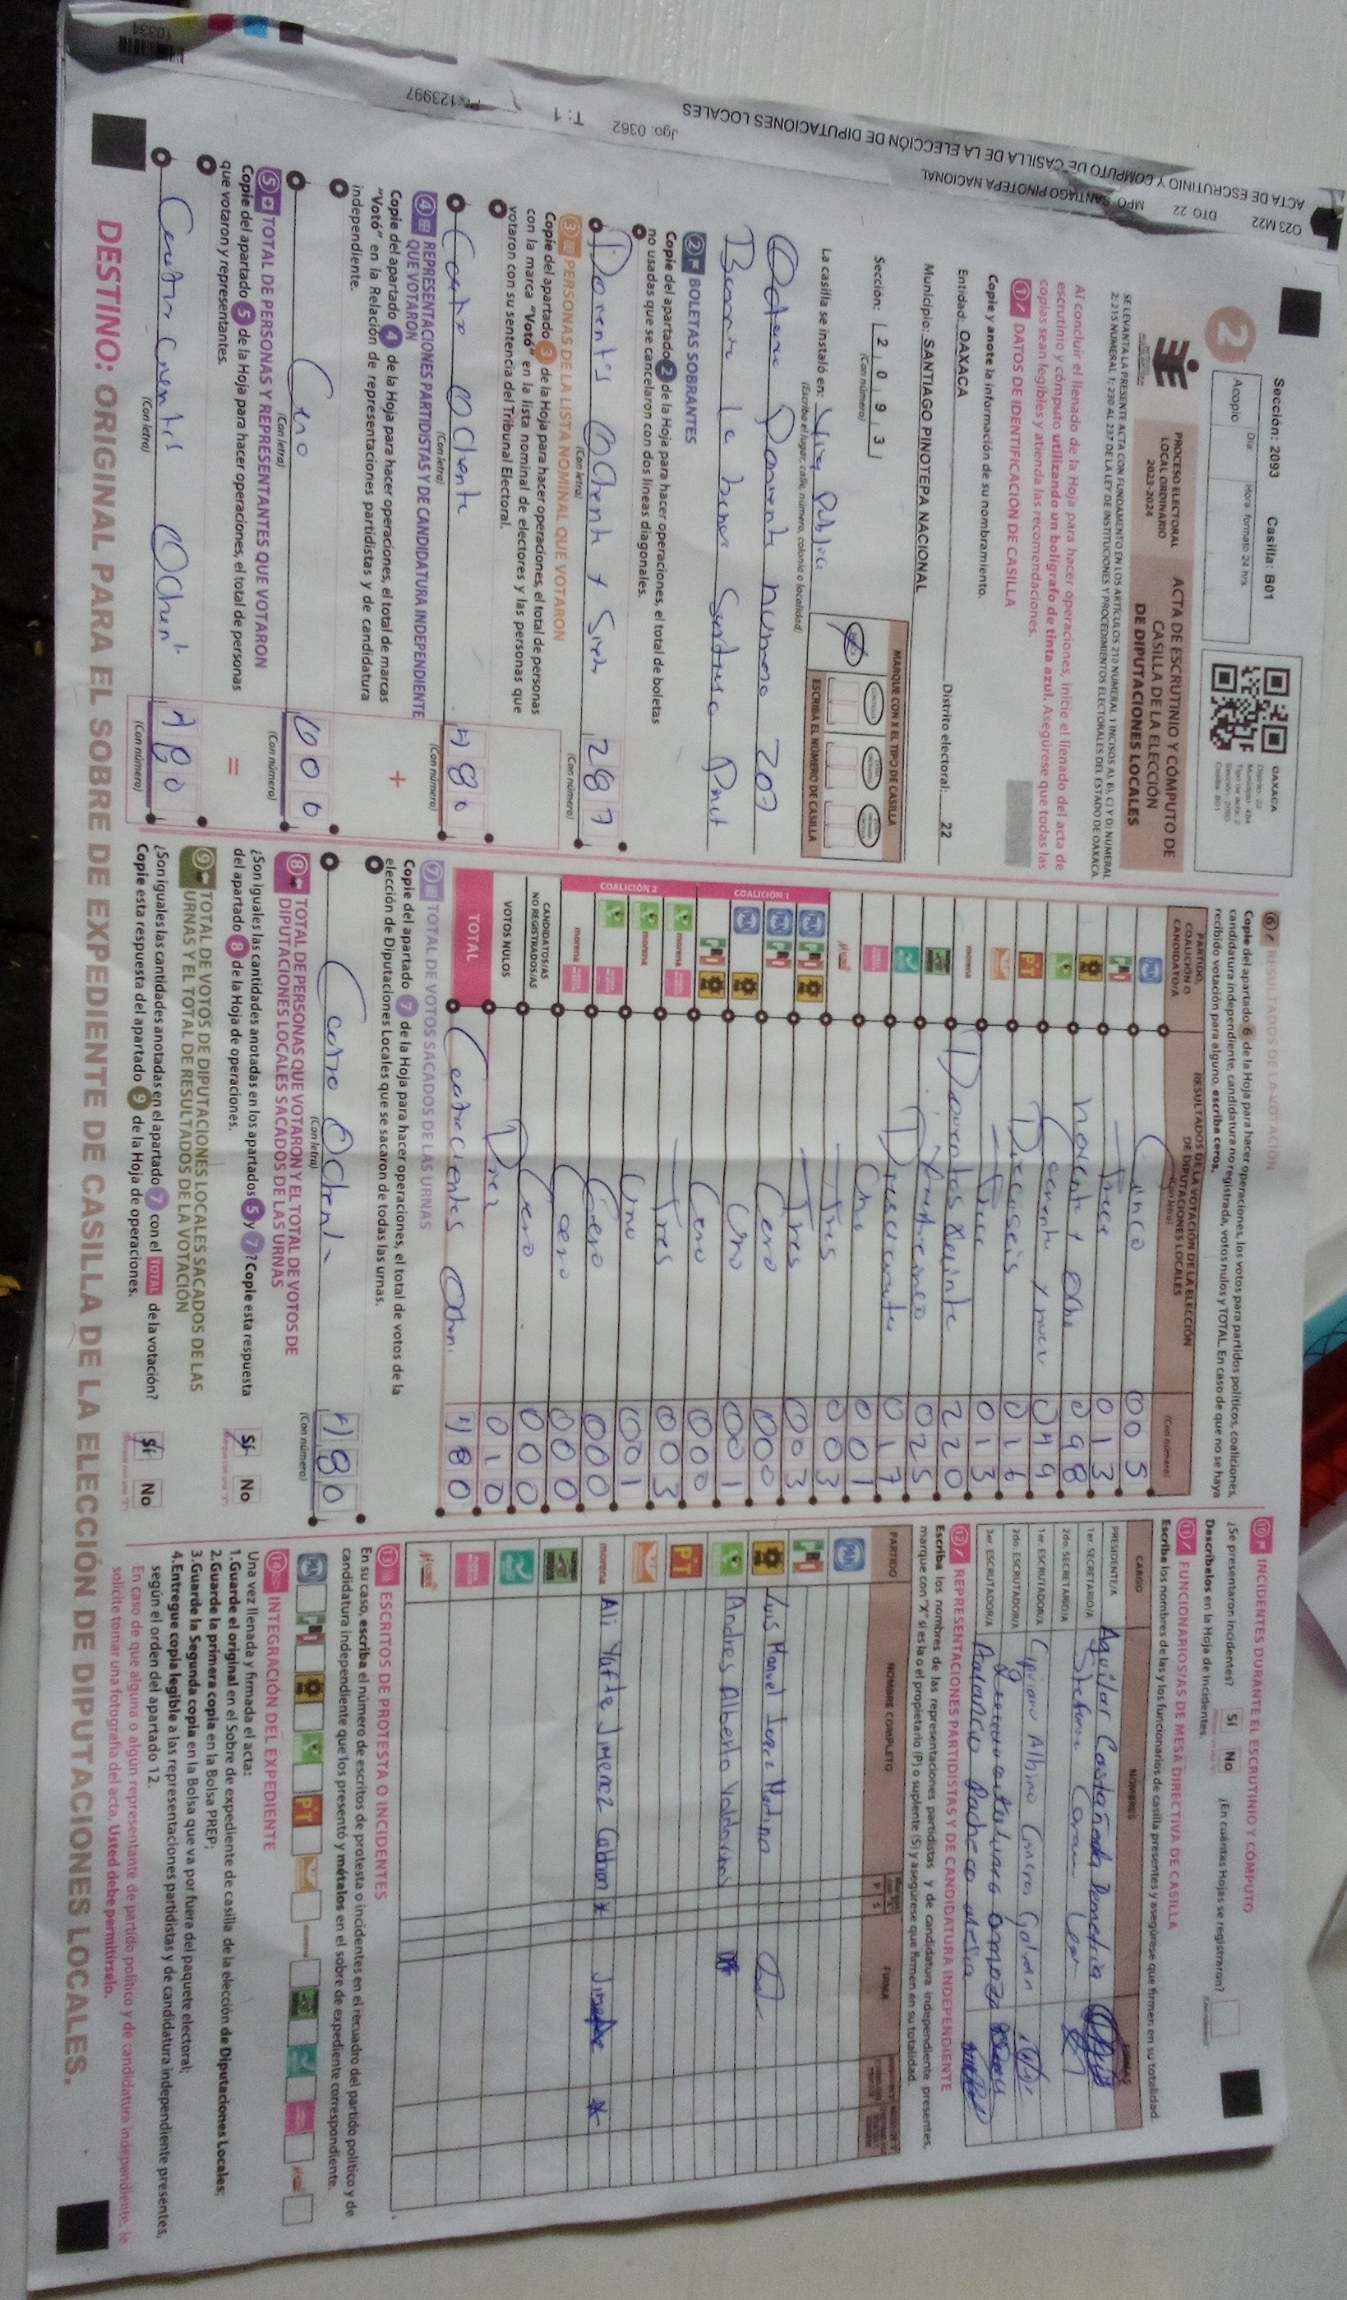 ACTA DE ESCRUTINIO Y CÓMPUTO DE CASILLA DE LA ELECCIÓN DE DIPUTACIONES LOCALES
O23 M22 DTO 22 MPO SANTIAGO PINOTEPA NACIONAL
Jgo: 0362
T: 1
Sección: 2093 Casilla: B01
2
Día: Hora: formato 24 hrs.
Acopio
OAXACA
PROCESO ELECTORAL
LOCAL ORDINARIO
2023-2024
ACTA DE ESCRUTINIO Y CÓMPUTO DE
CASILLA DE LA ELECCIÓN
DE DIPUTACIONES LOCALES
Al concluir el llenado de la Hoja para hacer operaciones, inicie el llenado del acta de
escrutinio y cómputo utilizando un bolígrafo de tinta azul. Asegúrese que todas las
copias sean legibles y atienda las recomendaciones.
1 DATOS DE IDENTIFICACIÓN DE CASILLA
Copie y anote la información de su nombramiento.
Entidad: OAXACA Distrito electoral: 22
Municipio: SANTIAGO PINOTEPA NACIONAL
Sección: 2 0 9 3
(Con número)
MARQUE CON X EL TIPO DE CASILLA
ESCRIBA EL NÚMERO DE CASILLA
La casilla se instaló en:
(Escriba el lugar, calle, número, colonia o localidad)
2 BOLETAS SOBRANTES
Copie del apartado 2 de la Hoja para hacer operaciones, el total de boletas
no usadas que se cancelaron con dos líneas diagonales.
287
(Con letra) (Con número)
3 PERSONAS DE LA LISTA NOMINAL QUE VOTARON
Copie del apartado 3 de la Hoja para hacer operaciones, el total de personas
con la marca "Votó" en la lista nominal de electores y las personas que
votaron con su sentencia del Tribunal Electoral.
480
(Con letra) (Con número)
4 REPRESENTACIONES PARTIDISTAS Y DE CANDIDATURA INDEPENDIENTE
QUE VOTARON
Copie del apartado 4 de la Hoja para hacer operaciones, el total de marcas
"Votó" en la Relación de representaciones partidistas y de candidatura
independiente.
000
(Con letra) (Con número)
5 TOTAL DE PERSONAS Y REPRESENTANTES QUE VOTARON
Copie del apartado 5 de la Hoja para hacer operaciones, el total de personas
que votaron y representantes.
480
(Con letra) (Con número)
6 RESULTADOS DE LA VOTACIÓN
Copie del apartado 6 de la Hoja para hacer operaciones, los votos para partidos políticos, coaliciones,
candidatura independiente, candidatura no registrada, votos nulos y TOTAL. En caso de que no se haya
recibido votación para alguno, escriba ceros.
PARTIDO, COALICIÓN O CANDIDATO/A
RESULTADOS DE LA VOTACIÓN DE LA ELECCIÓN DE DIPUTACIONES LOCALES
(Con letra) (Con número)
PAN Cinco 005
PRI Trece 013
noventa y ocho 098
049
PT Dieciseis 016
Trece 013
morena 220
025
017
Uno 001
COALICIÓN 1
Tres 003
Tres 003
Cero 000
Uno 001
Cero 000
COALICIÓN 2
Tres 003
Uno 001
Cero 000
CANDIDATOS/AS NO REGISTRADOS/AS Cero 000
VOTOS NULOS Cero 000
Diez 010
TOTAL 480
7 TOTAL DE VOTOS SACADOS DE LAS URNAS
Copie del apartado 7 de la Hoja para hacer operaciones, el total de votos de la
elección de Diputaciones Locales que se sacaron de todas las urnas.
480
(Con letra) (Con número)
8 TOTAL DE PERSONAS QUE VOTARON Y EL TOTAL DE VOTOS DE
DIPUTACIONES LOCALES SACADOS DE LAS URNAS
¿Son iguales las cantidades anotadas en los apartados 5 y 7? Copie esta respuesta
del apartado 8 de la Hoja de operaciones.
Sí No
9 TOTAL DE VOTOS DE DIPUTACIONES LOCALES SACADOS DE LAS
URNAS Y EL TOTAL DE RESULTADOS DE LA VOTACIÓN
¿Son iguales las cantidades anotadas en el apartado 7 con el TOTAL de la votación?
Copie esta respuesta del apartado 9 de la Hoja de operaciones.
Sí No
10 INCIDENTES DURANTE EL ESCRUTINIO Y CÓMPUTO
¿Se presentaron incidentes? Sí No ¿En cuántas Hojas se registraron?
Descríbalos en la Hoja de Incidentes.
11 FUNCIONARIOS/AS DE MESA DIRECTIVA DE CASILLA
Escriba los nombres de las y los funcionarios de casilla presentes y asegúrese que firmen en su totalidad.
CARGO NOMBRES FIRMAS
PRESIDENTE/A Aguilar Castañeda Demetria
1er. SECRETARIO/A
2do. SECRETARIO/A
1er. ESCRUTADOR/A Cipriano Albino Cisneros Galvan
2do. ESCRUTADOR/A
3er. ESCRUTADOR/A
12 REPRESENTACIONES PARTIDISTAS Y DE CANDIDATURA INDEPENDIENTE
Escriba los nombres de las representaciones partidistas y de candidatura independiente presentes,
marque con "X" si es la o el propietario (P) o suplente (S) y asegúrese que firmen en su totalidad.
PARTIDO NOMBRE COMPLETO FIRMA
Luis Manuel Lopez Medina
Andres Alberto
morena Ali Yafte Jimenez
13 ESCRITOS DE PROTESTA O INCIDENTES
En su caso, escriba el número de escritos de protesta o incidentes en el recuadro del partido político y de
candidatura independiente que los presentó y métalos en el sobre de expediente correspondiente.
14 INTEGRACIÓN DEL EXPEDIENTE
Una vez llenada y firmada el acta:
1.Guarde el original en el Sobre de expediente de casilla de la elección de Diputaciones Locales;
2.Guarde la primera copia en la Bolsa PREP;
3.Guarde la Segunda copia en la Bolsa que va por fuera del paquete electoral;
4.Entregue copia legible a las representaciones partidistas y de candidatura independiente presentes,
según el orden del apartado 12.
En caso de que alguna o algún representante de partido político y de candidatura independiente, le
solicite tomar una fotografía del acta, Usted debe permitírselo.
DESTINO: ORIGINAL PARA EL SOBRE DE EXPEDIENTE DE CASILLA DE LA ELECCIÓN DE DIPUTACIONES LOCALES.